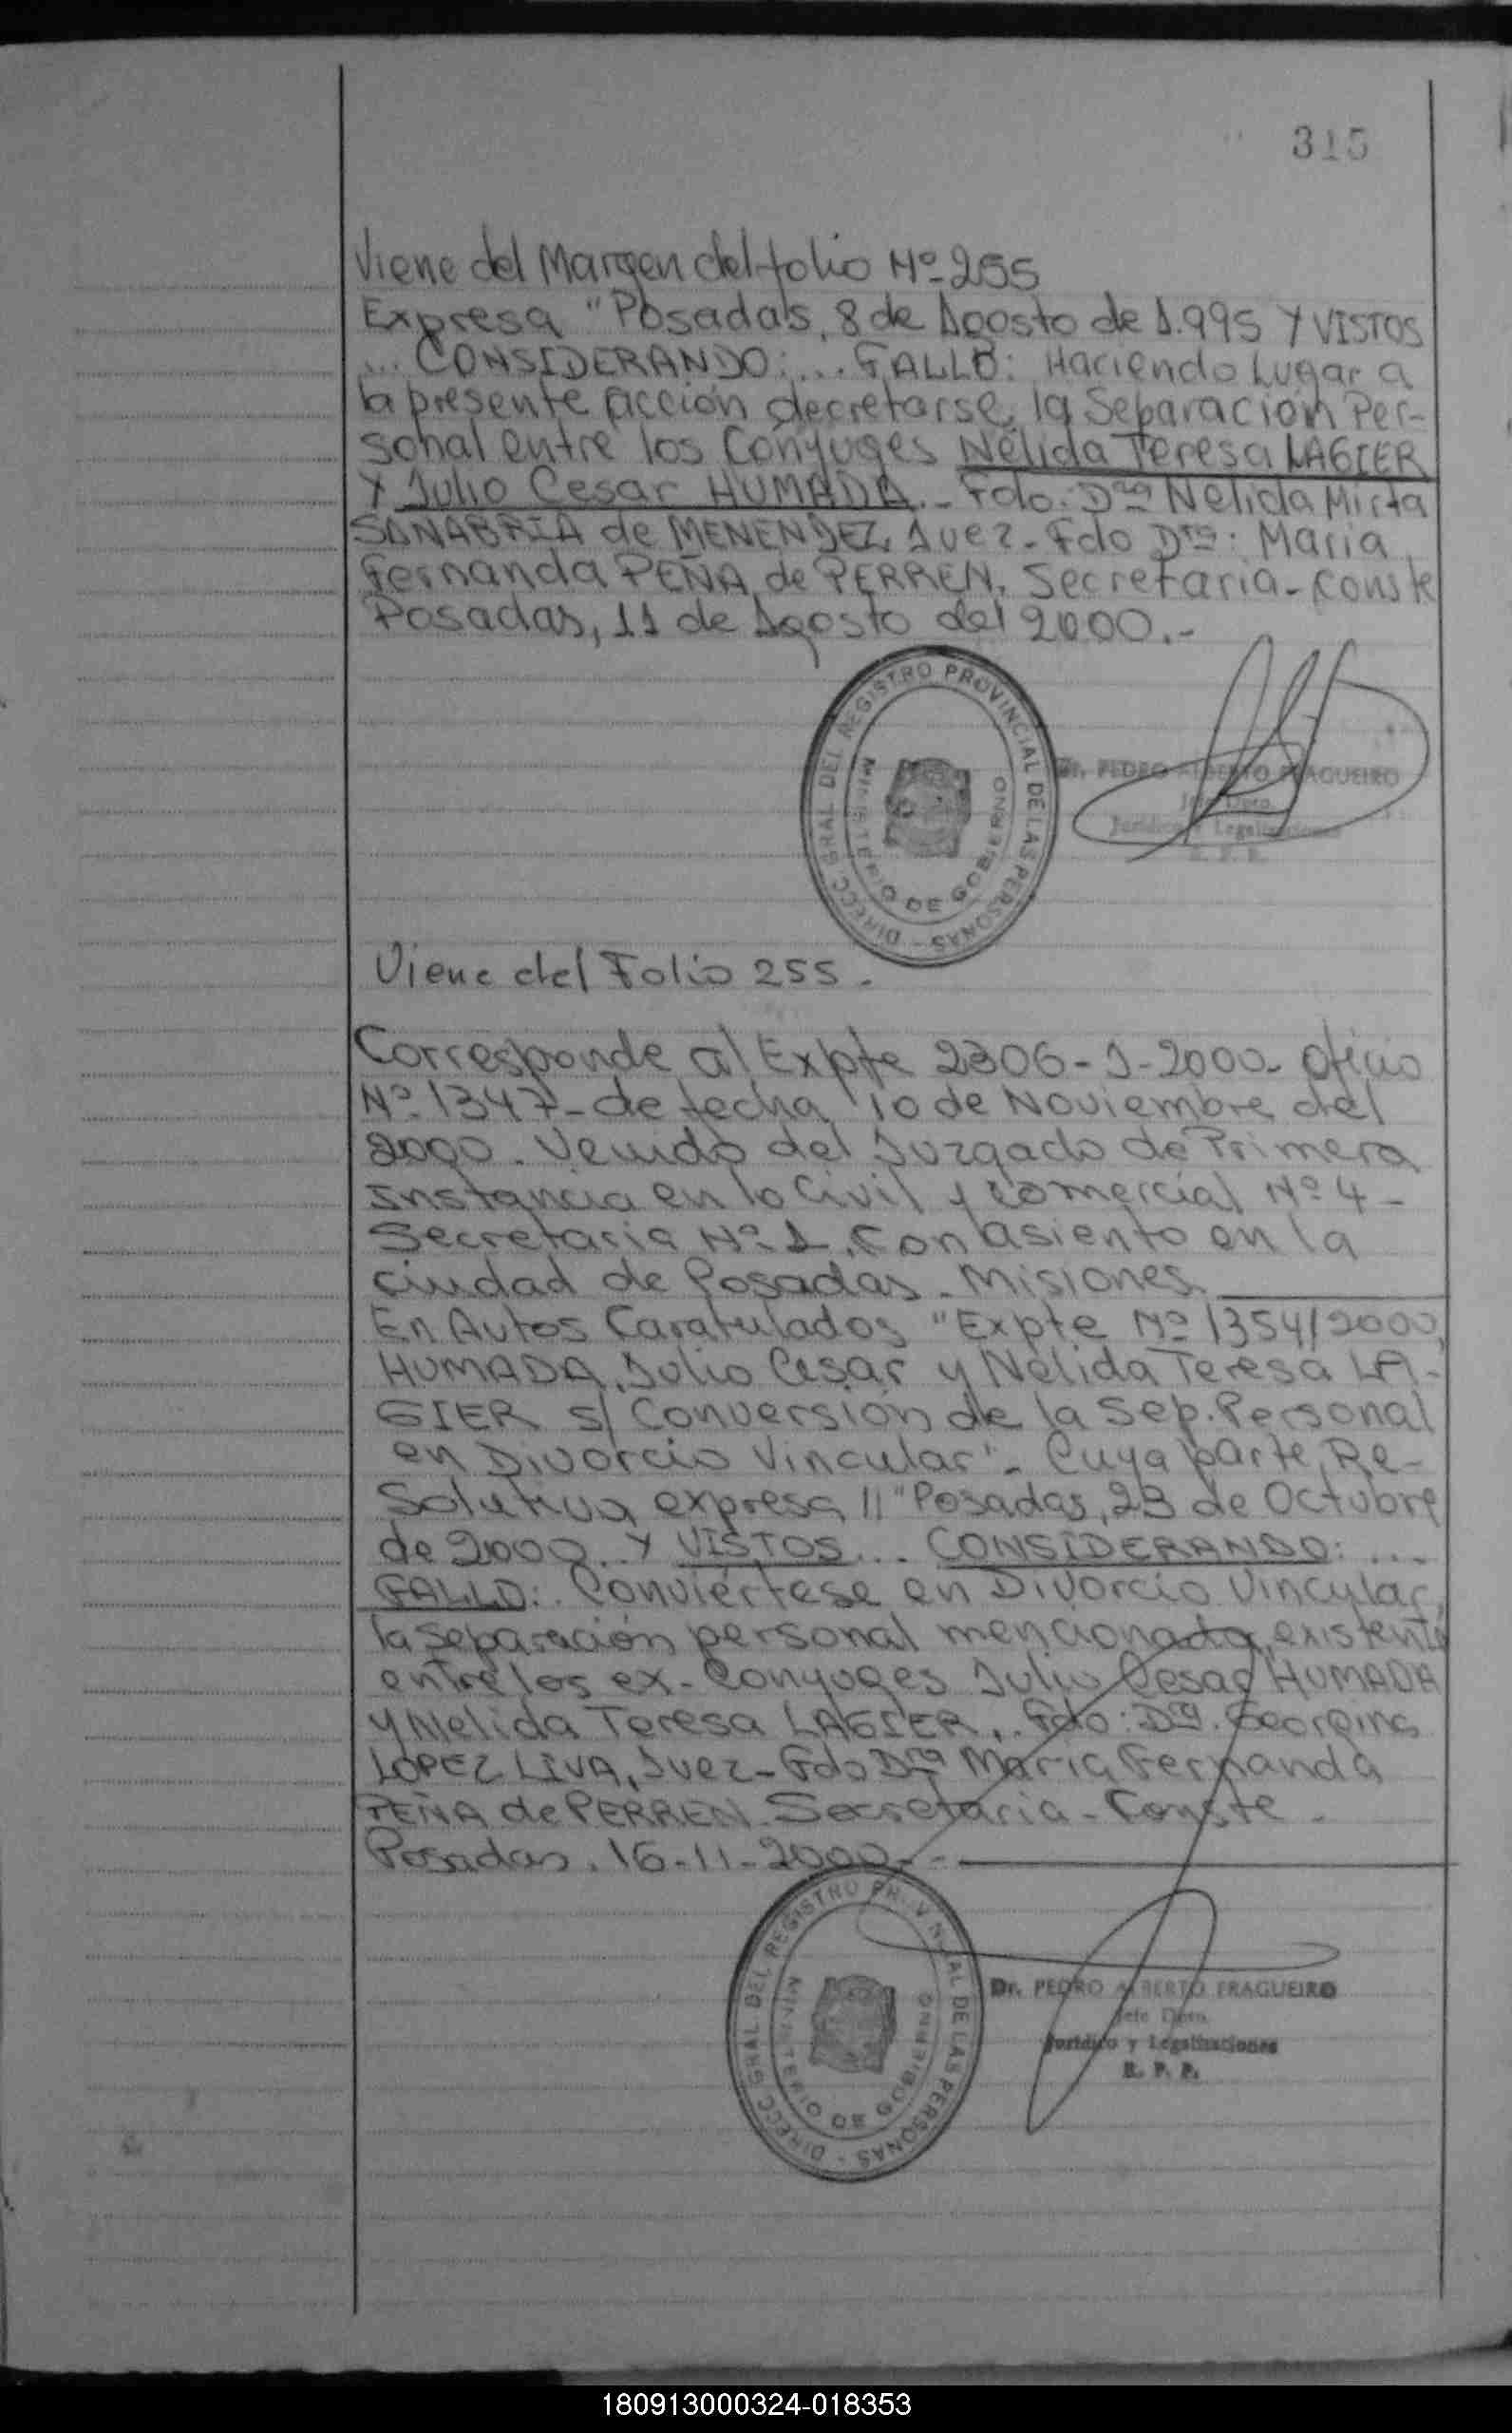 315
Viene del Margen del folio Nº 255
Expresa "Posadas, 8 de Agosto de 1.995 Y VISTOS
... CONSIDERANDO: ... FALLO: Haciendo Lugar a
la presente acción decretarse, la Separación Per-
sonal entre los Conyuges Nélida Teresa LAGIER
Y Julio Cesar HUMADA.- Fdo: Dra Nelida Mirta
SANABRIA de MENENDEZ, Juez - Fdo Dra: Maria
Fernanda PEÑA de PERREN, Secretaria - Conste
Posadas, 11 de Agosto del 2000.-
DIRECC. GRAL DEL REGISTRO PROVINCIAL DE LAS PERSONAS -
MINISTERIO DE GOBIERNO
Dr. PEDRO ALBERTO FRAGUEIRO
Jefe Dpto.
Jurídico y Legalizaciones
R. P. P.
Viene del Folio 255.
Corresponde al Expte 2306-J-2000- Oficio
Nº 1347- de fecha 10 de Noviembre del
2000. Venido del Juzgado de Primera
Instancia en lo Civil y Comercial Nº 4 -
Secretaria Nº 1, Con asiento en la
ciudad de Posadas - Misiones
En Autos Caratulados "Expte Nº 1354/2000,
HUMADA, Julio Cesar y Nélida Teresa LA-
GIER s/ Conversión de la Sep. Personal
en Divorcio Vincular" - Cuya parte Re-
solutiva expresa // "Posadas, 23 de Octubre
de 2000. Y VISTOS ... CONSIDERANDO: ...
FALLO: Conviértese en Divorcio Vincular,
la separación personal mencionada, existente
entre los ex-Conyuges Julio Cesar HUMADA
y Nelida Teresa LAGIER, Fdo: Dra. Georgina
LOPEZ LIVA, Juez - Fdo Dra Maria Fernanda
PEÑA de PERREN. Secretaria - Conste -
Posadas, 16-11-2000 - -
DIRECC. GRAL DEL REGISTRO PROVINCIAL DE LAS PERSONAS -
MINISTERIO DE GOBIERNO
Dr. PEDRO ALBERTO FRAGUEIRO
Jefe Dpto.
Jurídico y Legalizaciones
R. P. P.
180913000324-018353